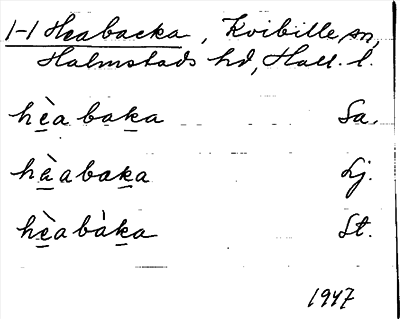 1-1 Heabacka, Kvibille sn,
Halmstads hd, Hall. l.
hè̲abak̲a Sa.
hà̲abak̲a Lj.
hè̲abàk̲a St.
1947